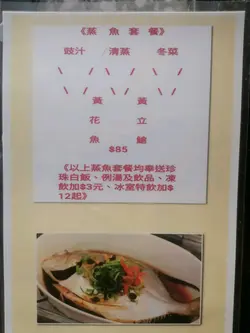 《蒸魚套餐》
豉汁 /清蒸 冬菜
\ / \ / \ / \ /
\ / \ / \ / \ /
黃 黃
花 立
魚 鯧
$85
《以上蒸魚套餐均奉送珍
珠白飯、例湯及飲品、凍
飲加$3元、冰室特飲加$
12起》